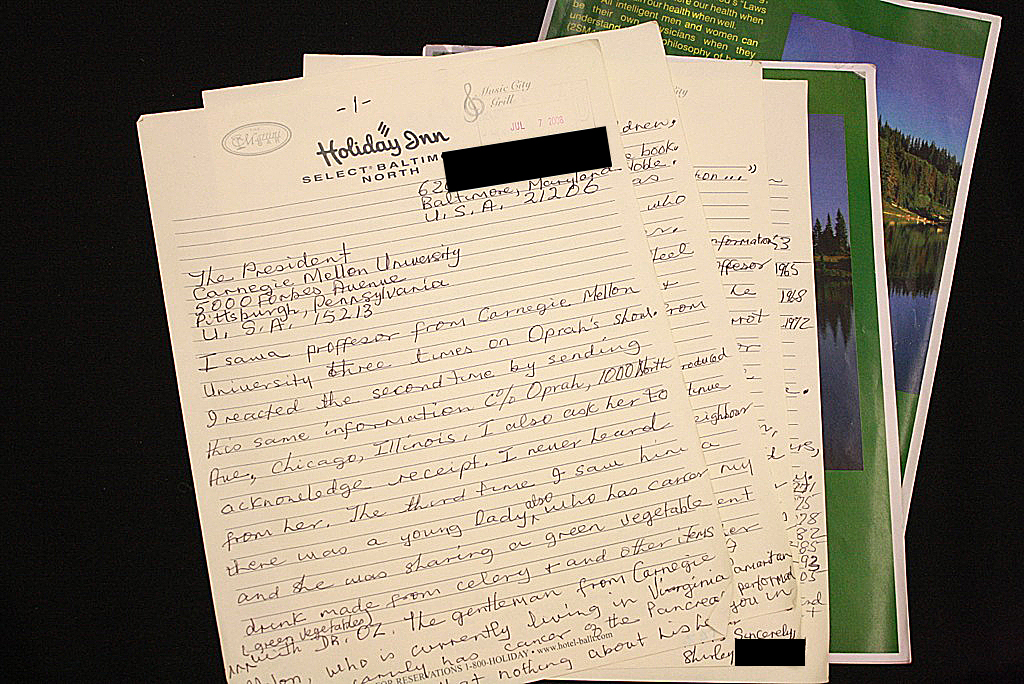 -1-
Music City
Grill
JUL 7 2008
Holiday Inn
SELECT BALTIM
NORTH
62
Baltimore, Maryland
U.S.A. 21206
The President
Carnegie Mellon University
5000 Forbes Avenue
Pittsburgh, Pennsylvania
U.S.A. 15213
I saw a proffesor from Carnegie Mellon
University three times on Oprah's show.
I reacted the second time by sending
this same information C% Oprah, 1000 North
Ave, Chicago, Illinois. I also ask her to
acknowledge receipt. I never heard
from her. The third time I saw him
there was a young lady, also who has cancer
and she was sharing a green vegetable
drink made from celery + and other items
(green vegetables)
with DR. OZ. The gentleman from Carnegie
who is currently living in Virginia
has cancer of the Pancrea
FOR RESERVATIONS 1-800-HOLIDAY • www.hotel-balt.com
nothing about
dren,
e book
as
who
feel
+
from
a
my
ent
you in
tion..."
nformation
proffesor 1965
he 1968
not 1972
roduced
tinue
neighbour
performed
53
75
78
82
85
93
03
Sincerely
Shirley
our health when
our health when well.
All intelligent men and women can
be their own physicians when they
understand philosophy of
"Laws